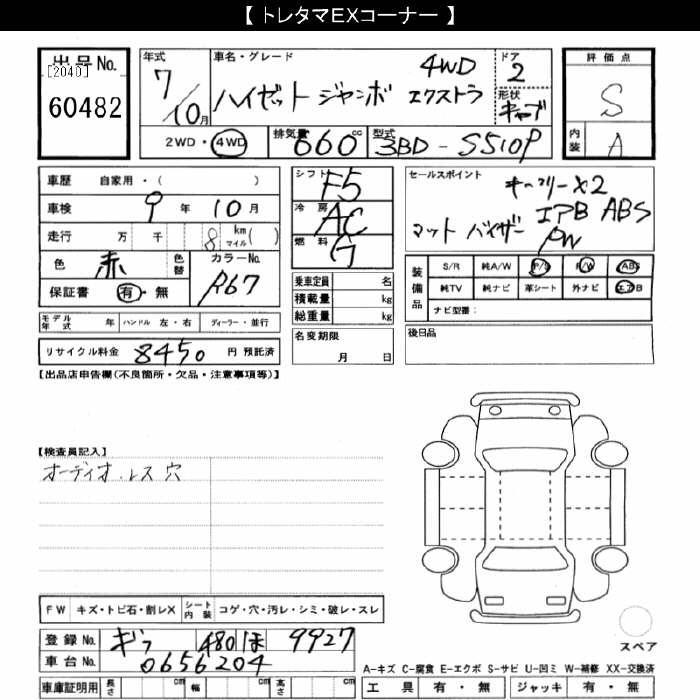 【 トレタマEXコーナー 】
出品No.
[2040]
60482
年式
7/10月
車名・グレード
4WD
ハイゼットジャンボ エクストラ
ドア
2
形状
キャブ
評価点
S
内装
A
2WD・4WD
排気量 660 cc
型式 3BD-S510P
車歴 自家用・( )
車検 9年 10月
走行 万 千 8 km マイル( )
色 赤 色替
カラーNo.
R67
保証書 有・無
シフト F5
冷房 AC
燃料 G
セールスポイント
キーフリーX2
エアB ABS
マット バイザー PW
装備品
S/R 純A/W P/S P/W ABS
純TV 純ナビ 革シート 外ナビ エアB
ナビ型番:
乗車定員 名
積載量 kg
総重量 kg
モデル年式 年 ハンドル 左・右 ディーラー・並行
名変期限
月 日
後日品
リサイクル料金 8450 円 預託済
【出品店申告欄(不良箇所・欠品・注意事項等)】
【検査員記入】
オーディオ.レス 穴
FW キズ・トビ石・割レX シート内装 コゲ・穴・汚レ・シミ・破レ・スレ
登録No. ギフ 480 ほ 9927
車台No. 0656204
車庫証明用 長さ cm 幅 cm 高さ cm
スペア
A-キズ C-腐食 E-エクボ S-サビ U-凹ミ W-補修 XX-交換済
工具 有・無 ジャッキ 有・無